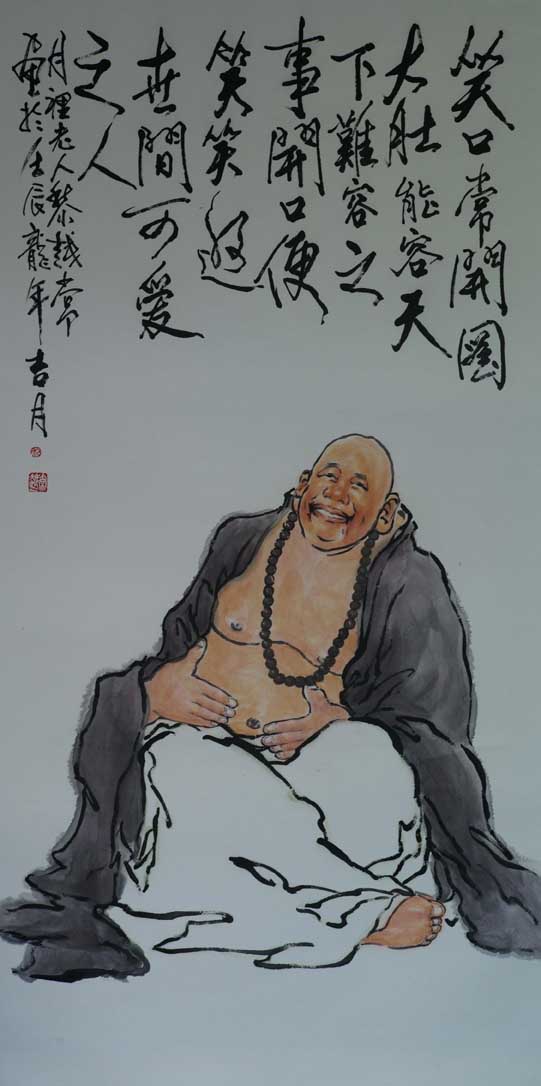 笑口常開圖
大肚能容天
下難容之
事開口便
笑笑
世間可愛
之人
月裡老人黎越常
畫於壬辰龍年吉月